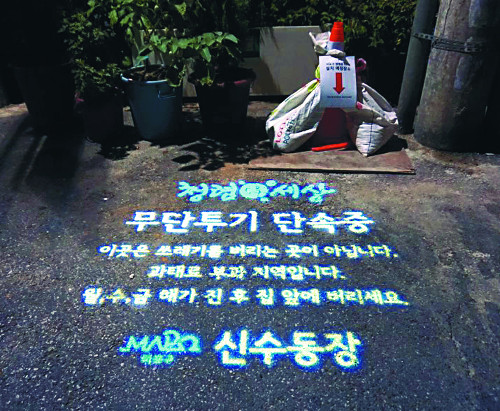 청렴 세상
무단투기 단속중
이곳은 쓰레기를 버리는 곳이 아닙니다.
과태료 부과 지역입니다.
월,수,금 해가 진 후 집 앞에 버리세요.
MAPO
마포구
신수동장